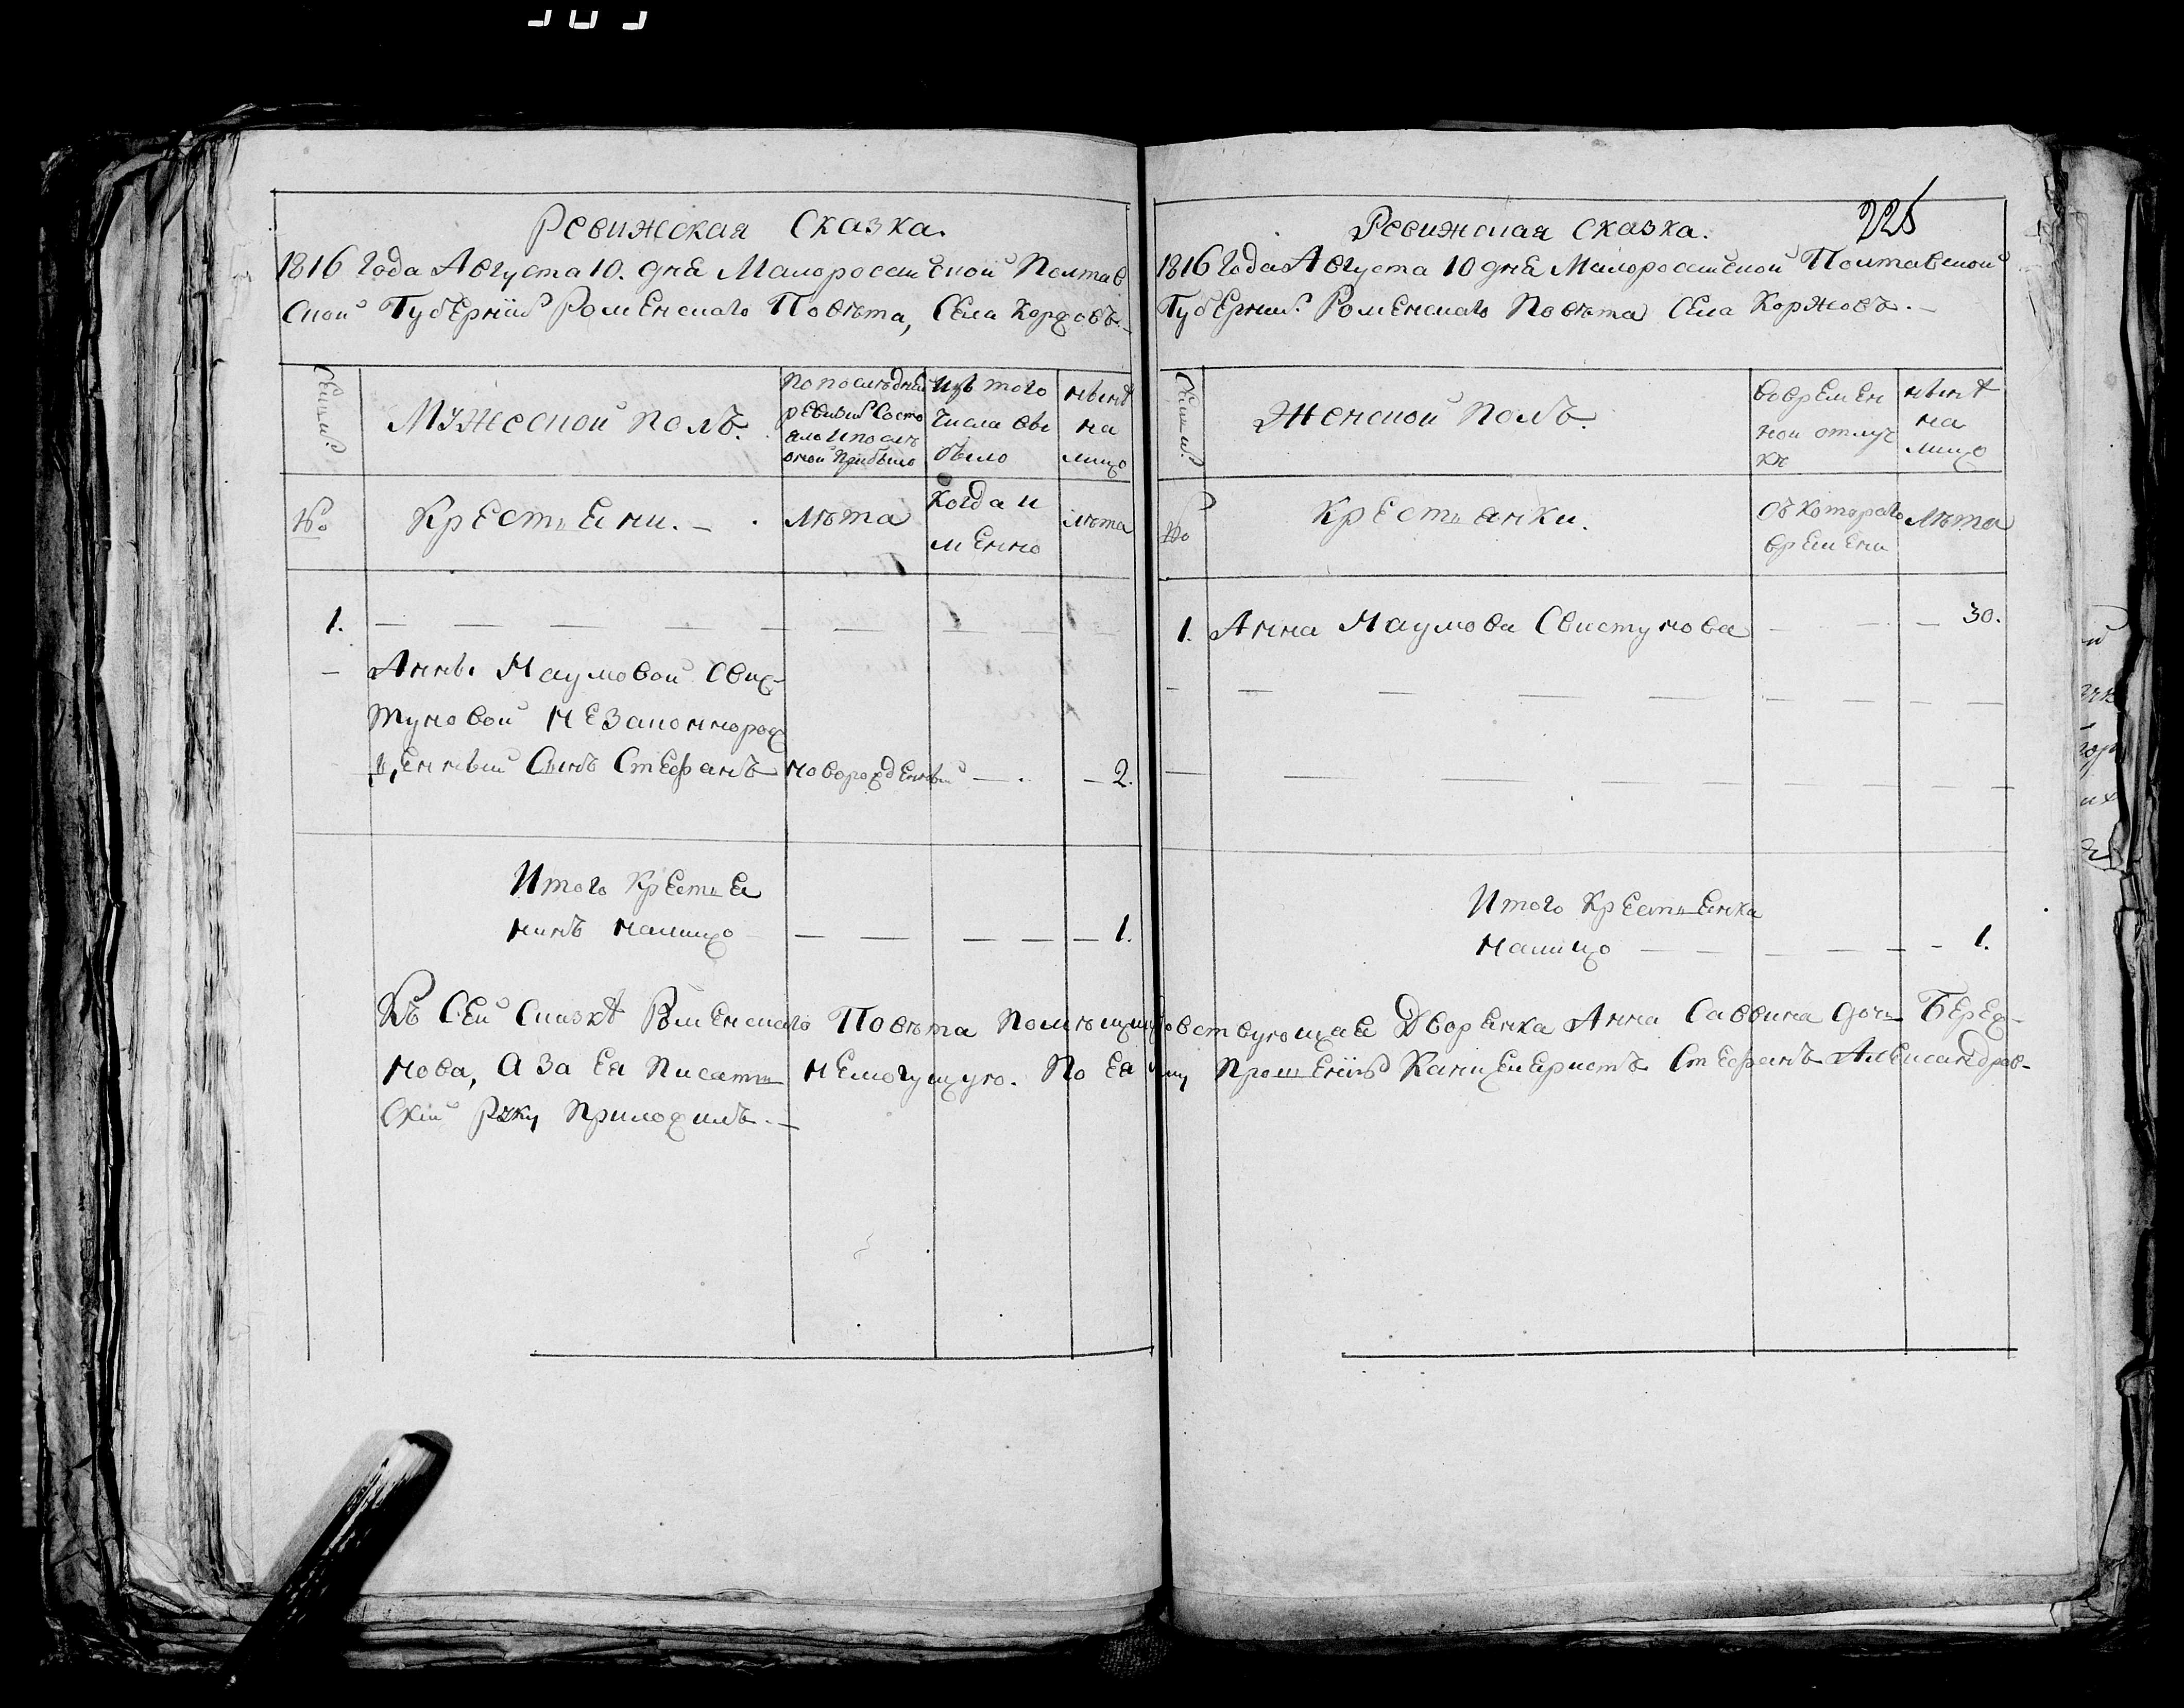 Ревижская Сказка.
1816 Года Августа 10. дня Малороссийской Полтав
ской Губернии Роменского Повѣта, Села Коржовъ.
Семьи
Мужеской полъ.
По последней
ревизии состо
яло и после
оной прибыло
Изъ того
числа вы
было
нынѣ
на
лицо
№
Крестьяни.
лѣта
Когда и
менно
лѣта
1.
Анны Наумовой Свис-
туновой незаконнорож
денный Сынъ Стефанъ новорожденный 2.
Итого Крестья
нинъ налицо 1.
Ревижская Сказка.
225
1816 Года Августа 10 дня Малороссийской Полтавской
Губернии Роменского Повѣта Села Коржовъ.
Семьи
Женской полъ.
во времен
ной отлуч
кѣ
нынѣ
на
лицо
№
Крестьянки.
Съ котораго
времени
лѣта
1. Анна Наумова Свистунова 30.
Итого Крестьянка
налицо 1.
Къ Сей Сказкѣ Роменского Повѣта Помещицствующая Дворянка Анна Саввина дочь Береж-
нова, А За Ея Писать Немогущую. По Ея Прошению Канцеляристъ Стефанъ Александров-
ский Руку Приложилъ.